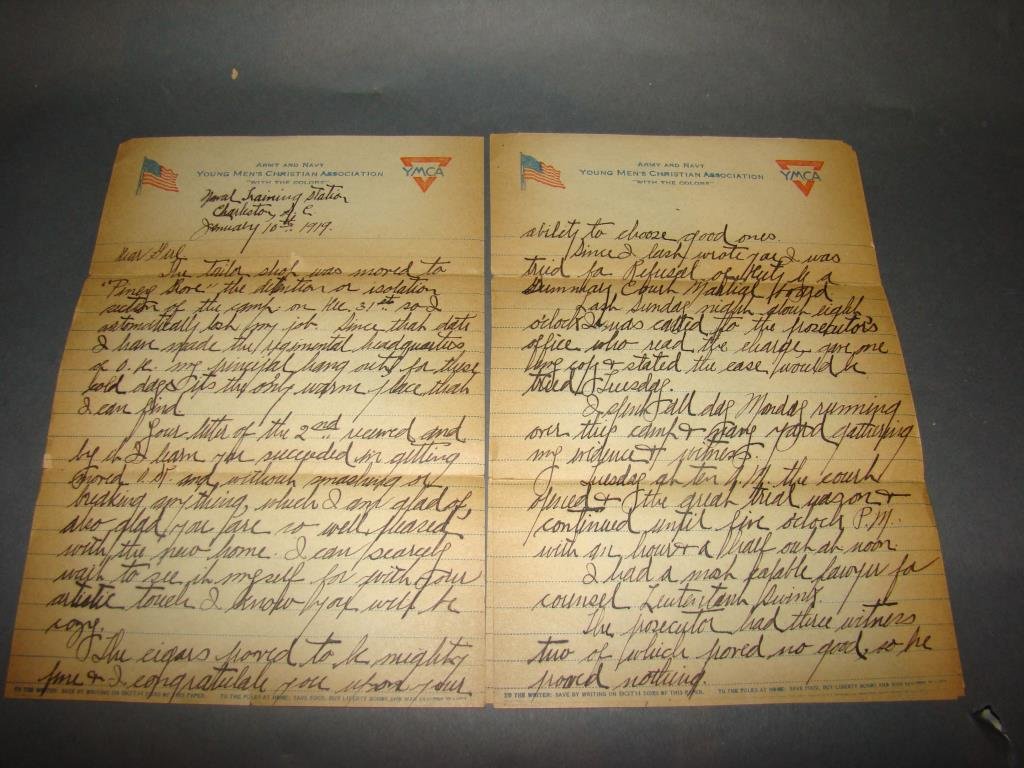 ARMY AND NAVY
YOUNG MEN'S CHRISTIAN ASSOCIATION
"WITH THE COLORS"
YMCA
Naval Training Station
Charleston, S. C.
January 10th 1919.
Dear
The tailor shop was moved to
"Piney Shore" the detention or isolation
section of the camp on Dec. 31st so I
automatically lost my job. Since that date
I have made the regimental headquarters
of O. K. my principal hang out, for these
cold days its the only warm place that
I can find
Your letter of the 2nd received and
by it I learn you succeeded in getting
moved O.K. and without smashing or
breaking anything, which I am glad of,
also glad you are so well pleased
with the new home. I can scarcely
wait to see it myself for with your
artistic touch I know you will be
cozy.
The cigars proved to be mighty
fine & I congratulate you upon your
TO THE WRITER: SAVE BY WRITING ON BOTH SIDES OF THIS PAPER. TO THE FOLKS AT HOME: SAVE FOOD, BUY LIBERTY BONDS AND WAR
ARMY AND NAVY
YOUNG MEN'S CHRISTIAN ASSOCIATION
"WITH THE COLORS"
YMCA
ability to choose good ones.
Since I last wrote you I was
tried for Refusal of Duty by a
Summary Court Martial Board
Last Sunday night about eight
o'clock I was called to the prosecutor's
office who read the charge, gave me
copy & stated the case would be
tried Tuesday.
I spent all day Monday running
over this camp & navy yard gathering
my evidence & witness.
Tuesday at ten A.M. the court
opened & the great trial was on &
continued until five o'clock P.M.
with an hour & a half out at noon.
I had a most capable lawyer for
counsel Leutentant
The prosecutor had three witness
two of which proved no good, so he
proved nothing.
TO THE WRITER: SAVE BY WRITING ON BOTH SIDES OF THIS PAPER. TO THE FOLKS AT HOME: SAVE FOOD, BUY LIBERTY BONDS AND WAR